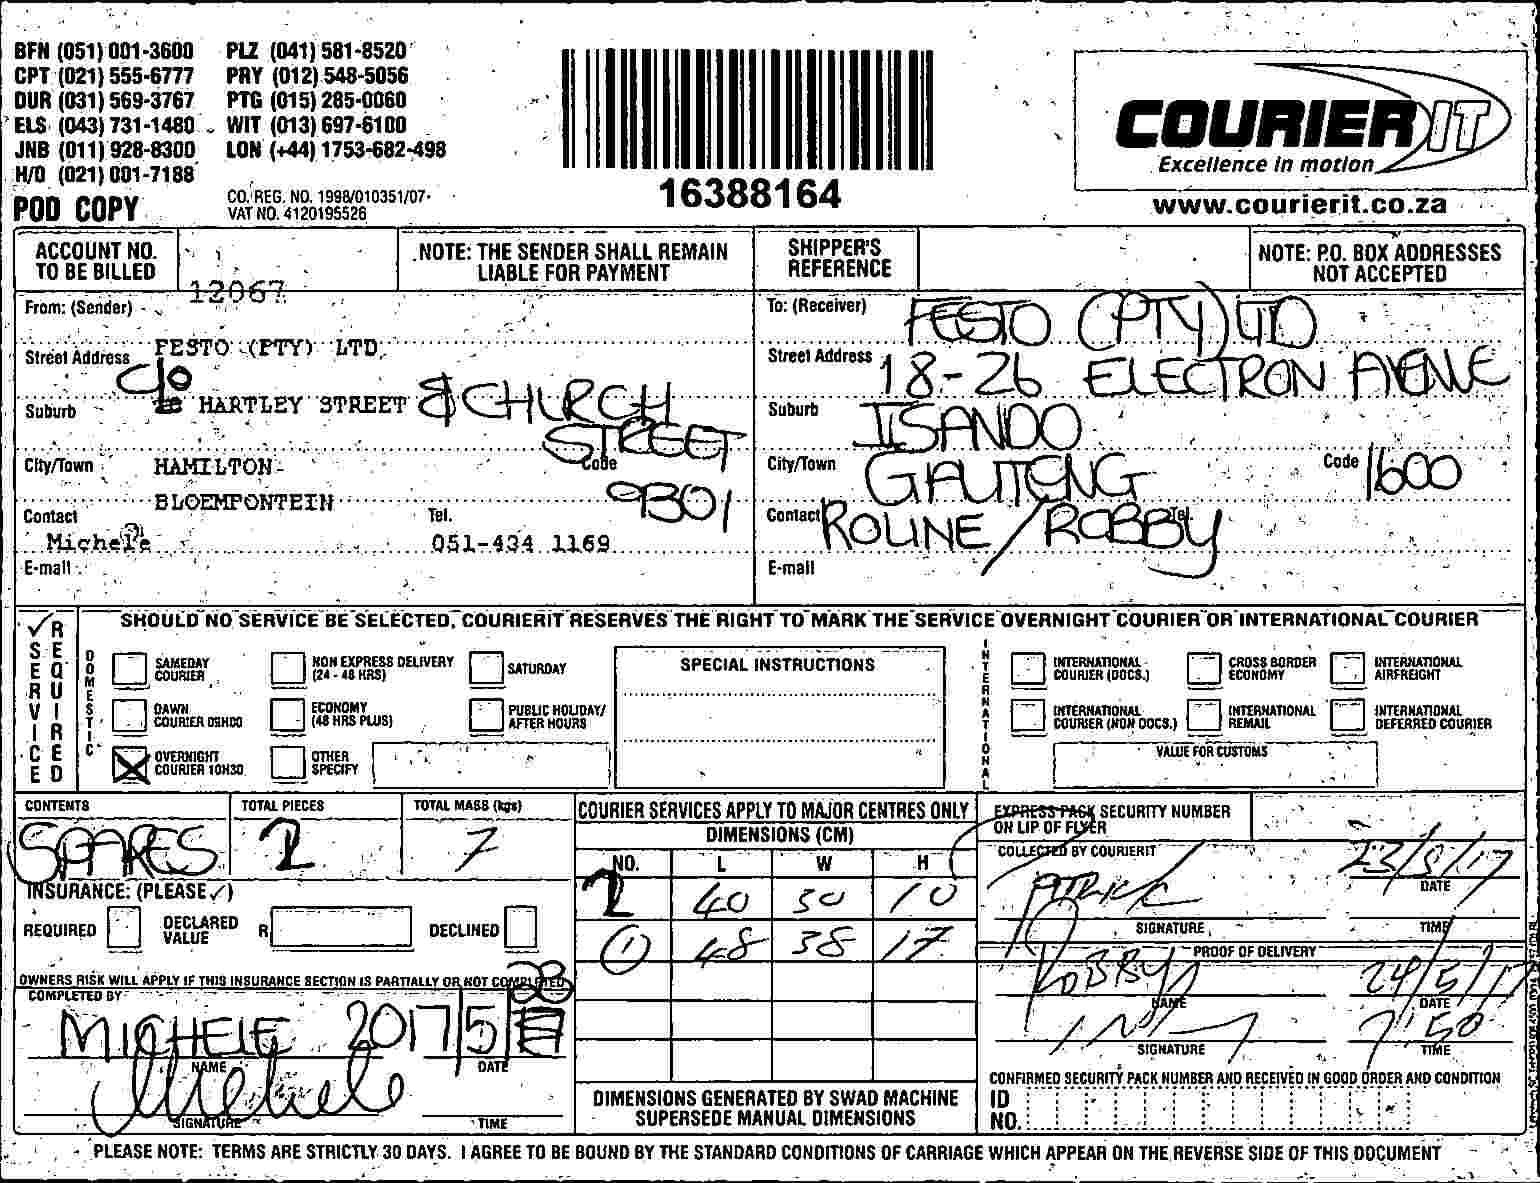 BFN (051) 001-3600 PLZ (041) 581-8520
CPT (021) 555-6777 PRY (012) 548-5056
DUR (031) 569-3767 PTG (015) 285-0060
ELS (043) 731-1480 WIT (013) 697-6100
JNB (011) 928-8300 LON (+44) 1753-682-498
H/O (021) 001-7188
CO. REG. NO. 1998/010351/07
VAT NO. 4120195526
POD COPY
16388164
COURIER IT
Excellence in motion
www.courierit.co.za
ACCOUNT NO. TO BE BILLED
12067
NOTE: THE SENDER SHALL REMAIN LIABLE FOR PAYMENT
SHIPPER'S REFERENCE
NOTE: P.O. BOX ADDRESSES NOT ACCEPTED
From: (Sender)
FESTO (PTY) LTD
Street Address
c/o
Suburb HARTLEY STREET & CHURCH
STREET
City/Town HAMILTON
Code
BLOEMFONTEIN 9301
Contact Tel.
Michele 051-434 1169
E-mail
To: (Receiver) FESTO (PTY) LTD
Street Address 18-26 ELECTRON AVENUE
Suburb ISANDO
City/Town GAUTENG Code 1600
Contact ROLINE/ROBBY Tel
E-mail
✓ SERVICE REQUIRED
SHOULD NO SERVICE BE SELECTED, COURIERIT RESERVES THE RIGHT TO MARK THE SERVICE OVERNIGHT COURIER OR INTERNATIONAL COURIER
DOMESTIC
SAMEDAY COURIER
NON EXPRESS DELIVERY (24 - 48 HRS)
SATURDAY
DAWN COURIER 09H00
ECONOMY (48 HRS PLUS)
PUBLIC HOLIDAY/ AFTER HOURS
X OVERNIGHT COURIER 10H30
OTHER SPECIFY
SPECIAL INSTRUCTIONS
INTERNATIONAL
INTERNATIONAL COURIER (DOCS.)
CROSS BORDER ECONOMY
INTERNATIONAL AIRFREIGHT
INTERNATIONAL COURIER (NON DOCS.)
INTERNATIONAL REMAIL
INTERNATIONAL DEFERRED COURIER
VALUE FOR CUSTOMS
CONTENTS TOTAL PIECES TOTAL MASS (kgs)
SPARES 2 7
INSURANCE: (PLEASE ✓)
REQUIRED DECLARED VALUE R DECLINED
OWNERS RISK WILL APPLY IF THIS INSURANCE SECTION IS PARTIALLY OR NOT COMPLETED
COMPLETED BY
23
MICHELE 2017/5/
NAME DATE
Michele
SIGNATURE TIME
COURIER SERVICES APPLY TO MAJOR CENTRES ONLY
DIMENSIONS (CM)
NO. L W H
2 40 30 10
1 48 38 17
DIMENSIONS GENERATED BY SWAD MACHINE SUPERSEDE MANUAL DIMENSIONS
EXPRESS PACK SECURITY NUMBER ON LIP OF FLYER
COLLECTED BY COURIERIT
23/5/17
DATE
SIGNATURE TIME
PROOF OF DELIVERY
ROBBY 24/5/17
NAME DATE
7:50
SIGNATURE TIME
CONFIRMED SECURITY PACK NUMBER AND RECEIVED IN GOOD ORDER AND CONDITION
ID NO.
PLEASE NOTE: TERMS ARE STRICTLY 30 DAYS. I AGREE TO BE BOUND BY THE STANDARD CONDITIONS OF CARRIAGE WHICH APPEAR ON THE REVERSE SIDE OF THIS DOCUMENT